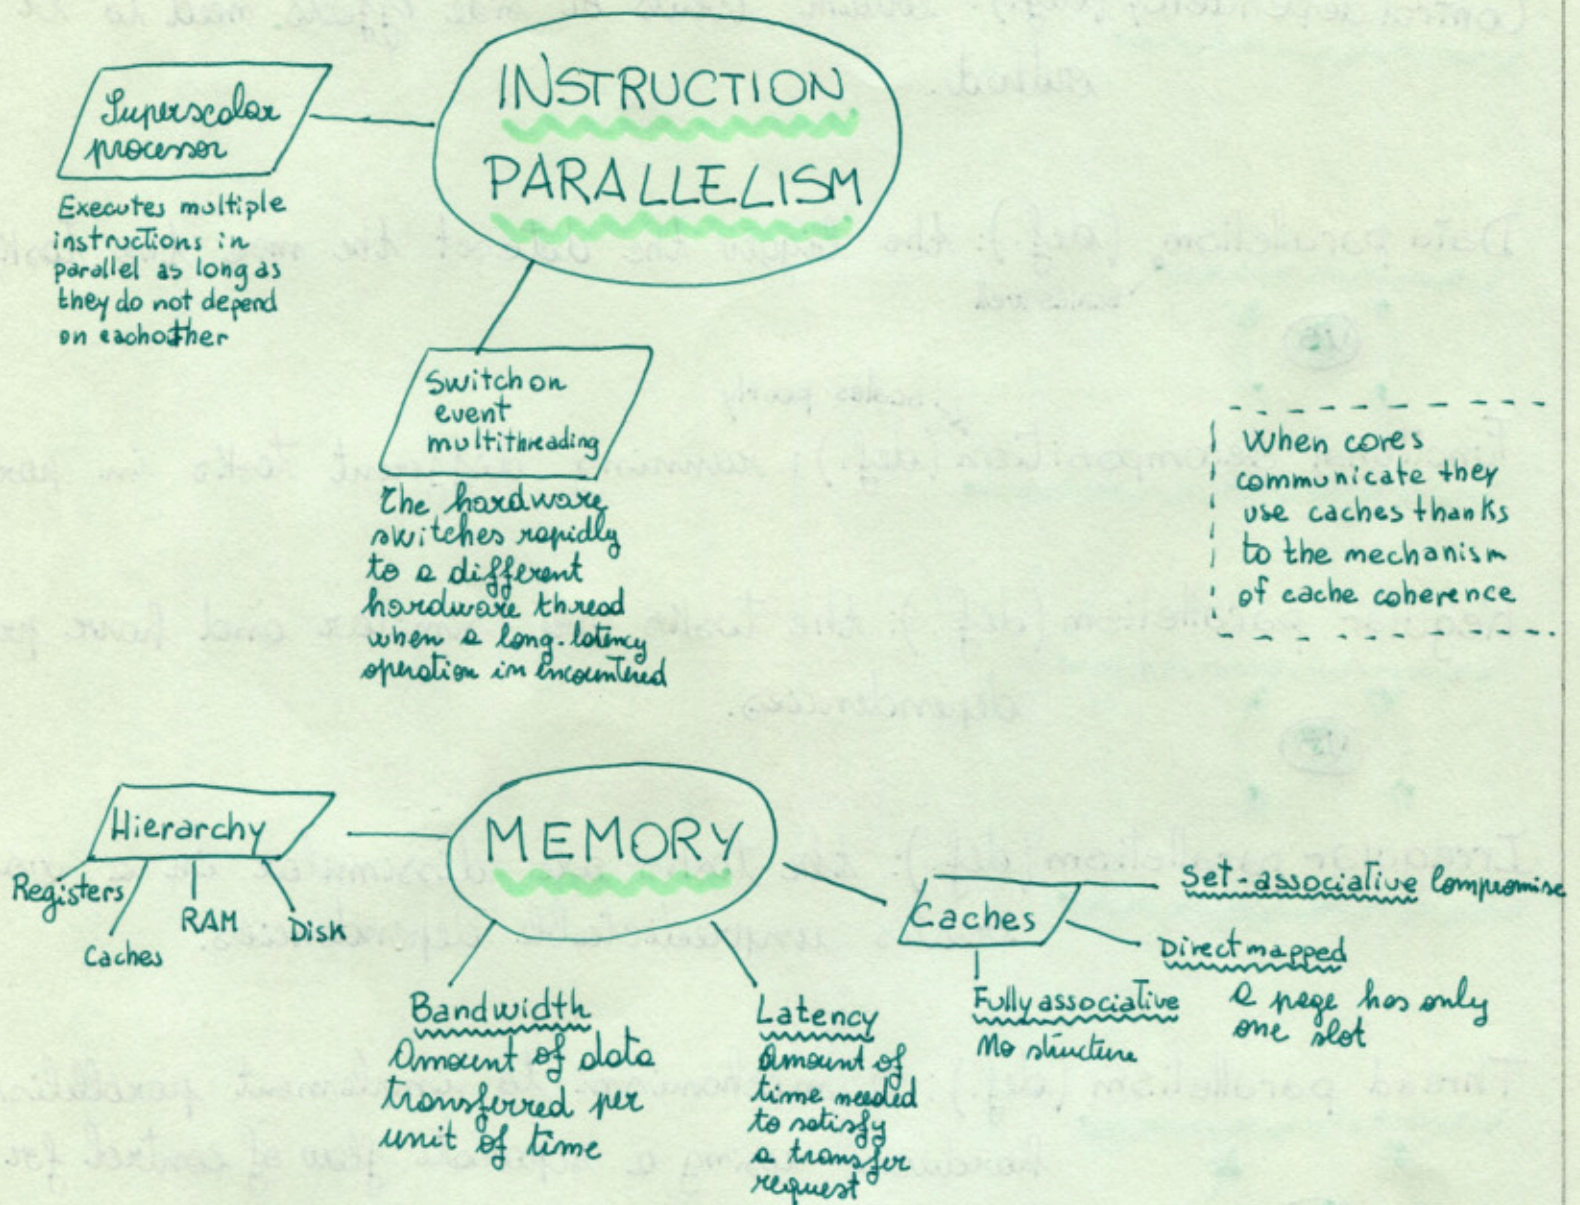 INSTRUCTION
PARALLELISM
Superscalar
processor
Executes multiple
instructions in
parallel as long as
they do not depend
on eachother
Switch on
event
multithreading
The hardware
switches rapidly
to a different
hardware thread
when a long-latency
operation in encountered
When cores
communicate they
use caches thanks
to the mechanism
of cache coherence
MEMORY
Hierarchy
Registers
Caches
RAM
Disk
Bandwidth
Amount of data
transferred per
unit of time
Latency
Amount of
time needed
to satisfy
a transfer
request
Caches
Set-associative Compromise
Direct mapped
a page has only
one slot
Fully associative
No structure
Data parallelism (def):
vs
scales poorly
dependencies.
vs
unpredictable dependencies.